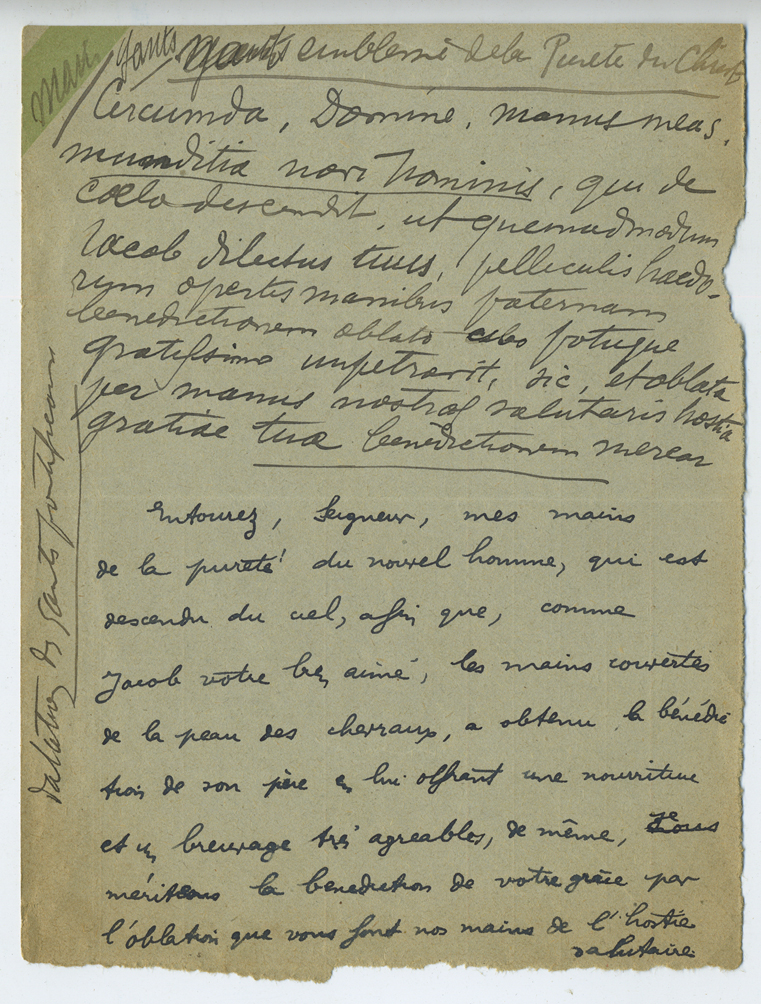 gants gants emblème de la Pureté du Christ
Circumda, Domine, manus meas,
munditia novi hominis, qui de
coelo descendit, ut quemadmodum
Iacob dilectus tuus, pelliculis haedo-
rum opertis manibus paternam
benedictionem oblato cibo potuque
gratissimo impetravit, sic, et oblata
per manus nostras salutaris hostia
gratiae tuae benedictionem merear
Entourez, Seigneur, mes mains
de la pureté du nouvel homme, qui est
descendu du ciel, afin que, comme
Jacob votre bien aimé, les mains couvertes
de la peau des chevraux, a obtenu la bénédic
tion de son père en lui offrant une nourriture
et un breuvage très agreables, de même,
méritions la benediction de votre grâce par
l'oblation que vous font nos mains de l'hostie
salutaire
des gants